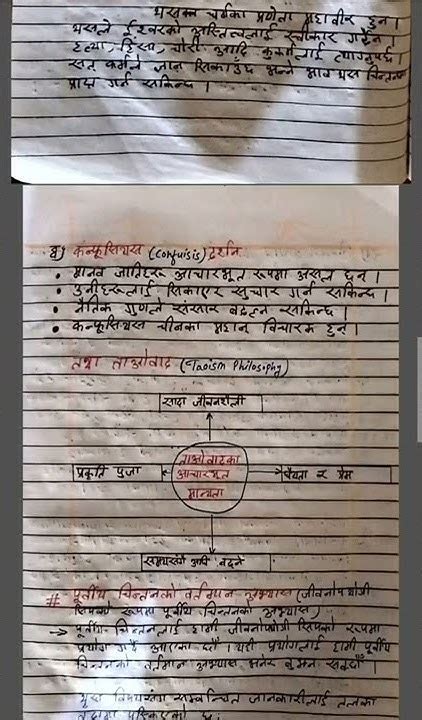 यसका धर्मका प्रणेता महावीर हुन ।
यसले ईश्वरको अस्तित्वलाई स्वीकार गर्दैन ।
हत्या, हिंसा, चोरी आदि कुकर्मलाई त्याग्नुपर्छ ।
सत कर्मले ज्ञान सिकाउँछ भन्ने भाव यस चिन्तनमा
प्राप्त गर्न सकिन्छ ।
कन्फुसियस (Confuisis) दर्शन
• मानव जातिहरू आधारभूत रूपमा असल छन् ।
• उनीहरूलाई सिकाएर सुधार गर्न सकिन्छ ।
• नैतिक गुणले संसार बदल्न सकिन्छ ।
• कन्फुसियस चीनका महान् विचारक हुन् ।
तथा ताओवाद (Taoism Philosophy)
सादा जीवनशैली
प्रकृति पुजा
ताओवादका
आधारभूत
मान्यता
धैर्यता र प्रेम
आदि बढ्ने
# पूर्वीय चिन्तनको वर्तमान अभ्यास (जीवनोपयोगी
सिपको रूपमा पूर्वीय चिन्तनको अभ्यास)
→ पूर्वीय चिन्तनलाई हामी जीवनोपयोगी सिपको रूपमा
प्रयोग गर्दै आएका छौं । यही प्रयोगलाई हामी पूर्वीय
चिन्तनको वर्तमान अभ्यास भनेर बुझ्न सक्छौं ।
सम्बन्धित जानकारीलाई तलका